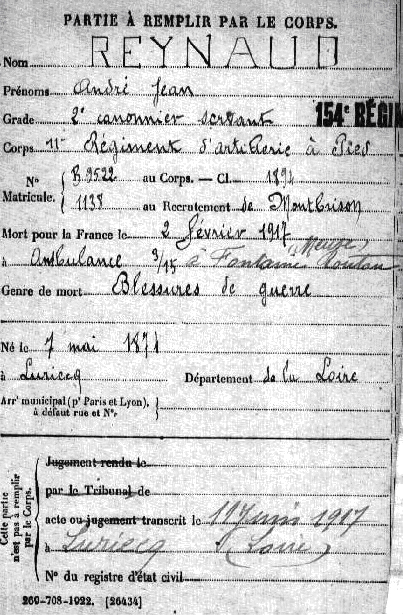 PARTIE À REMPLIR PAR LE CORPS.
Nom REYNAUD
Prénoms André Jean
Grade 2e canonnier servant 154e RÉGI
Corps 11e Régiment d'artillerie à Pied
N° Matricule. { B 9522 au Corps. — Cl. 1891
1138 au Recrutement de Montbrison
Mort pour la France le 2 février 1917
à Ambulance 3/15 à Fontaine Routon Meuse
Genre de mort Blessures de guerre
Né le 7 mai 1871
à Luriecq Département de la Loire
Arrt municipal (pr Paris et Lyon),
à défaut rue et N°.
Cette partie n'est pas à remplir par le Corps.
Jugement rendu le
par le Tribunal de
acte ou jugement transcrit le 11 juin 1917
à Luriecq (Loire)
N° du registre d'état civil
269-708-1922. [26434]